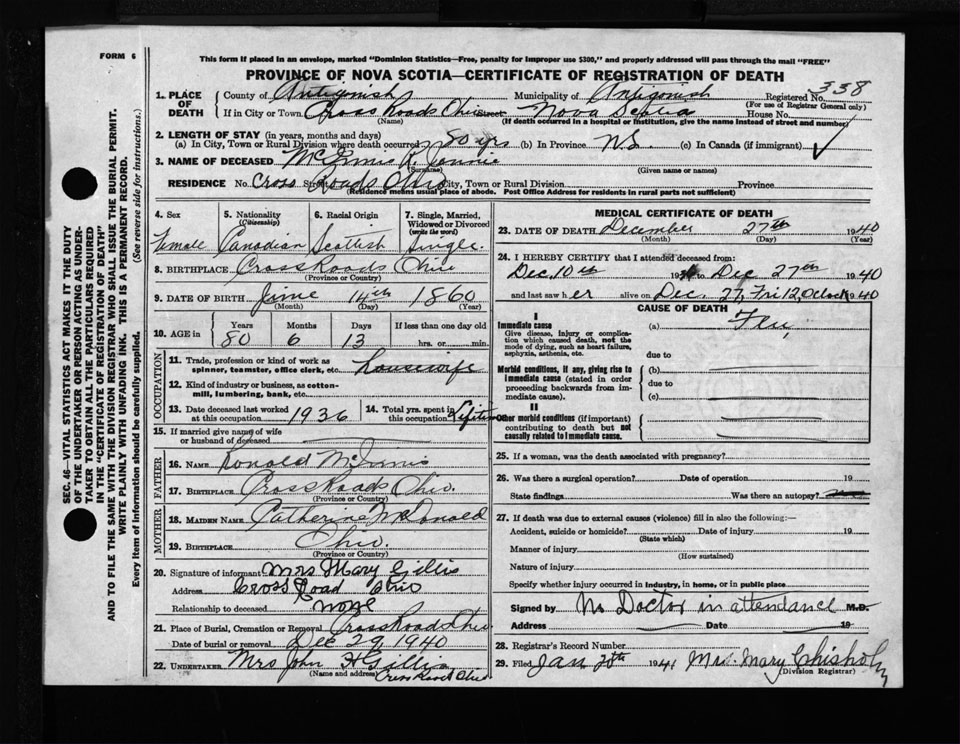 FORM 6
This form if placed in an envelope, marked "Dominion Statistics—Free, penalty for improper use $300," and properly addressed will pass through the mail "FREE"
PROVINCE OF NOVA SCOTIA—CERTIFICATE OF REGISTRATION OF DEATH
1. PLACE OF DEATH
County of Antigonish Municipality of Antigonish Registered No. 338
(For use of Registrar General only)
If in City or Town Cross Roads Ohio Street Nova Scotia House No.
(Name) (If death occurred in a hospital or institution, give the name instead of street and number)
2. LENGTH OF STAY (in years, months and days)
(a) In City, Town or Rural Division where death occurred 80 yrs (b) In Province N.S. (c) In Canada (if immigrant) ✓
3. NAME OF DECEASED McInnis Jennie
(Surname) (Given name or names)
RESIDENCE No. Cross Street Roads Ohio City, Town or Rural Division Province
(Residence means usual place of abode. Post Office Address for residents in rural parts not sufficient)
4. Sex 5. Nationality (Citizenship) 6. Racial Origin 7. Single, Married, Widowed or Divorced (write the word)
Female Canadian Scottish Single
8. BIRTHPLACE Cross Roads Ohio
(Province or Country)
9. DATE OF BIRTH June 14th 1860
(Month) (Day) (Year)
10. AGE in Years Months Days If less than one day old
80 6 13 hrs. or min.
OCCUPATION
11. Trade, profession or kind of work as spinner, teamster, office clerk, etc. Housewife
12. Kind of industry or business, as cotton-mill, lumbering, bank, etc.
13. Date deceased last worked at this occupation 1936 14. Total yrs. spent in this occupation Lifetime
15. If married give name of wife or husband of deceased
FATHER
16. NAME Ronald McInnis
17. BIRTHPLACE Cross Roads Ohio.
(Province or Country)
MOTHER
18. MAIDEN NAME Catherine McDonald
19. BIRTHPLACE Ohio.
(Province or Country)
20. Signature of informant Mrs Mary Gillis
Address Cross Road Ohio
Relationship to deceased none
21. Place of Burial, Cremation or Removal Cross Roads Ohio
Date of burial or removal Dec 29, 1940
22. UNDERTAKER Mrs John H Gillis
(Name and address) Cross Road Ohio
MEDICAL CERTIFICATE OF DEATH
23. DATE OF DEATH December 27th 1940
(Month) (Day) (Year)
24. I HEREBY CERTIFY that I attended deceased from:
Dec. 10th to Dec 27th 1940
and last saw her alive on Dec. 27, Fri 12, Oclock 1940
CAUSE OF DEATH
I
Immediate cause (a) Flu,
Give disease, injury or complication which caused death, not the mode of dying, such as heart failure, asphyxia, asthenia, etc.
due to
Morbid conditions, if any, giving rise to immediate cause (stated in order proceeding backwards from immediate cause).
(b)
due to
(c)
II
Other morbid conditions (if important) contributing to death but not causally related to immediate cause.
25. If a woman, was the death associated with pregnancy?
26. Was there a surgical operation? Date of operation 19
State findings Was there an autopsy?
27. If death was due to external causes (violence) fill in also the following:—
Accident, suicide or homicide? Date of injury 19
(State which)
Manner of injury
(How sustained)
Nature of injury
Specify whether injury occurred in industry, in home, or in public place
Signed by No Doctor in attendance M.D.
Address Date 19
28. Registrar's Record Number
29. Filed Jan 28th 1941 Mrs. Mary Chisholm
(Division Registrar)
SEC. 46—VITAL STATISTICS ACT MAKES IT THE DUTY
OF THE UNDERTAKER OR PERSON ACTING AS UNDER-
TAKER TO OBTAIN ALL THE PARTICULARS REQUIRED
IN THE "CERTIFICATE OF REGISTRATION OF DEATH"
AND TO FILE THE SAME WITH THE DIVISION REGISTRAR WHO SHALL ISSUE THE BURIAL PERMIT.
WRITE PLAINLY WITH UNFADING INK. THIS IS A PERMANENT RECORD.
Every item of information should be carefully supplied. (See reverse side for instructions.)